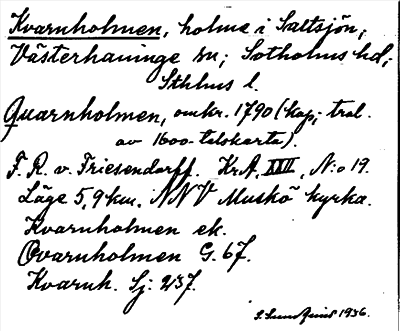 Kvarnholmen, holme i Saltsjön,
Västerhaninge sn; Sotholms hd;
Sthlms l.
Quarnholmen, omkr. 1790 (kop; trol.
av 1600-talskarta).
F. R. v. Friesendorff. Kr.A, XXII, N:o 19.
Läge 5,9 km. NNV Muskö kyrka.
Kvarnholmen ek.
Qvarnholmen G. 67.
Kvarnh. Sj: 237.
1936.